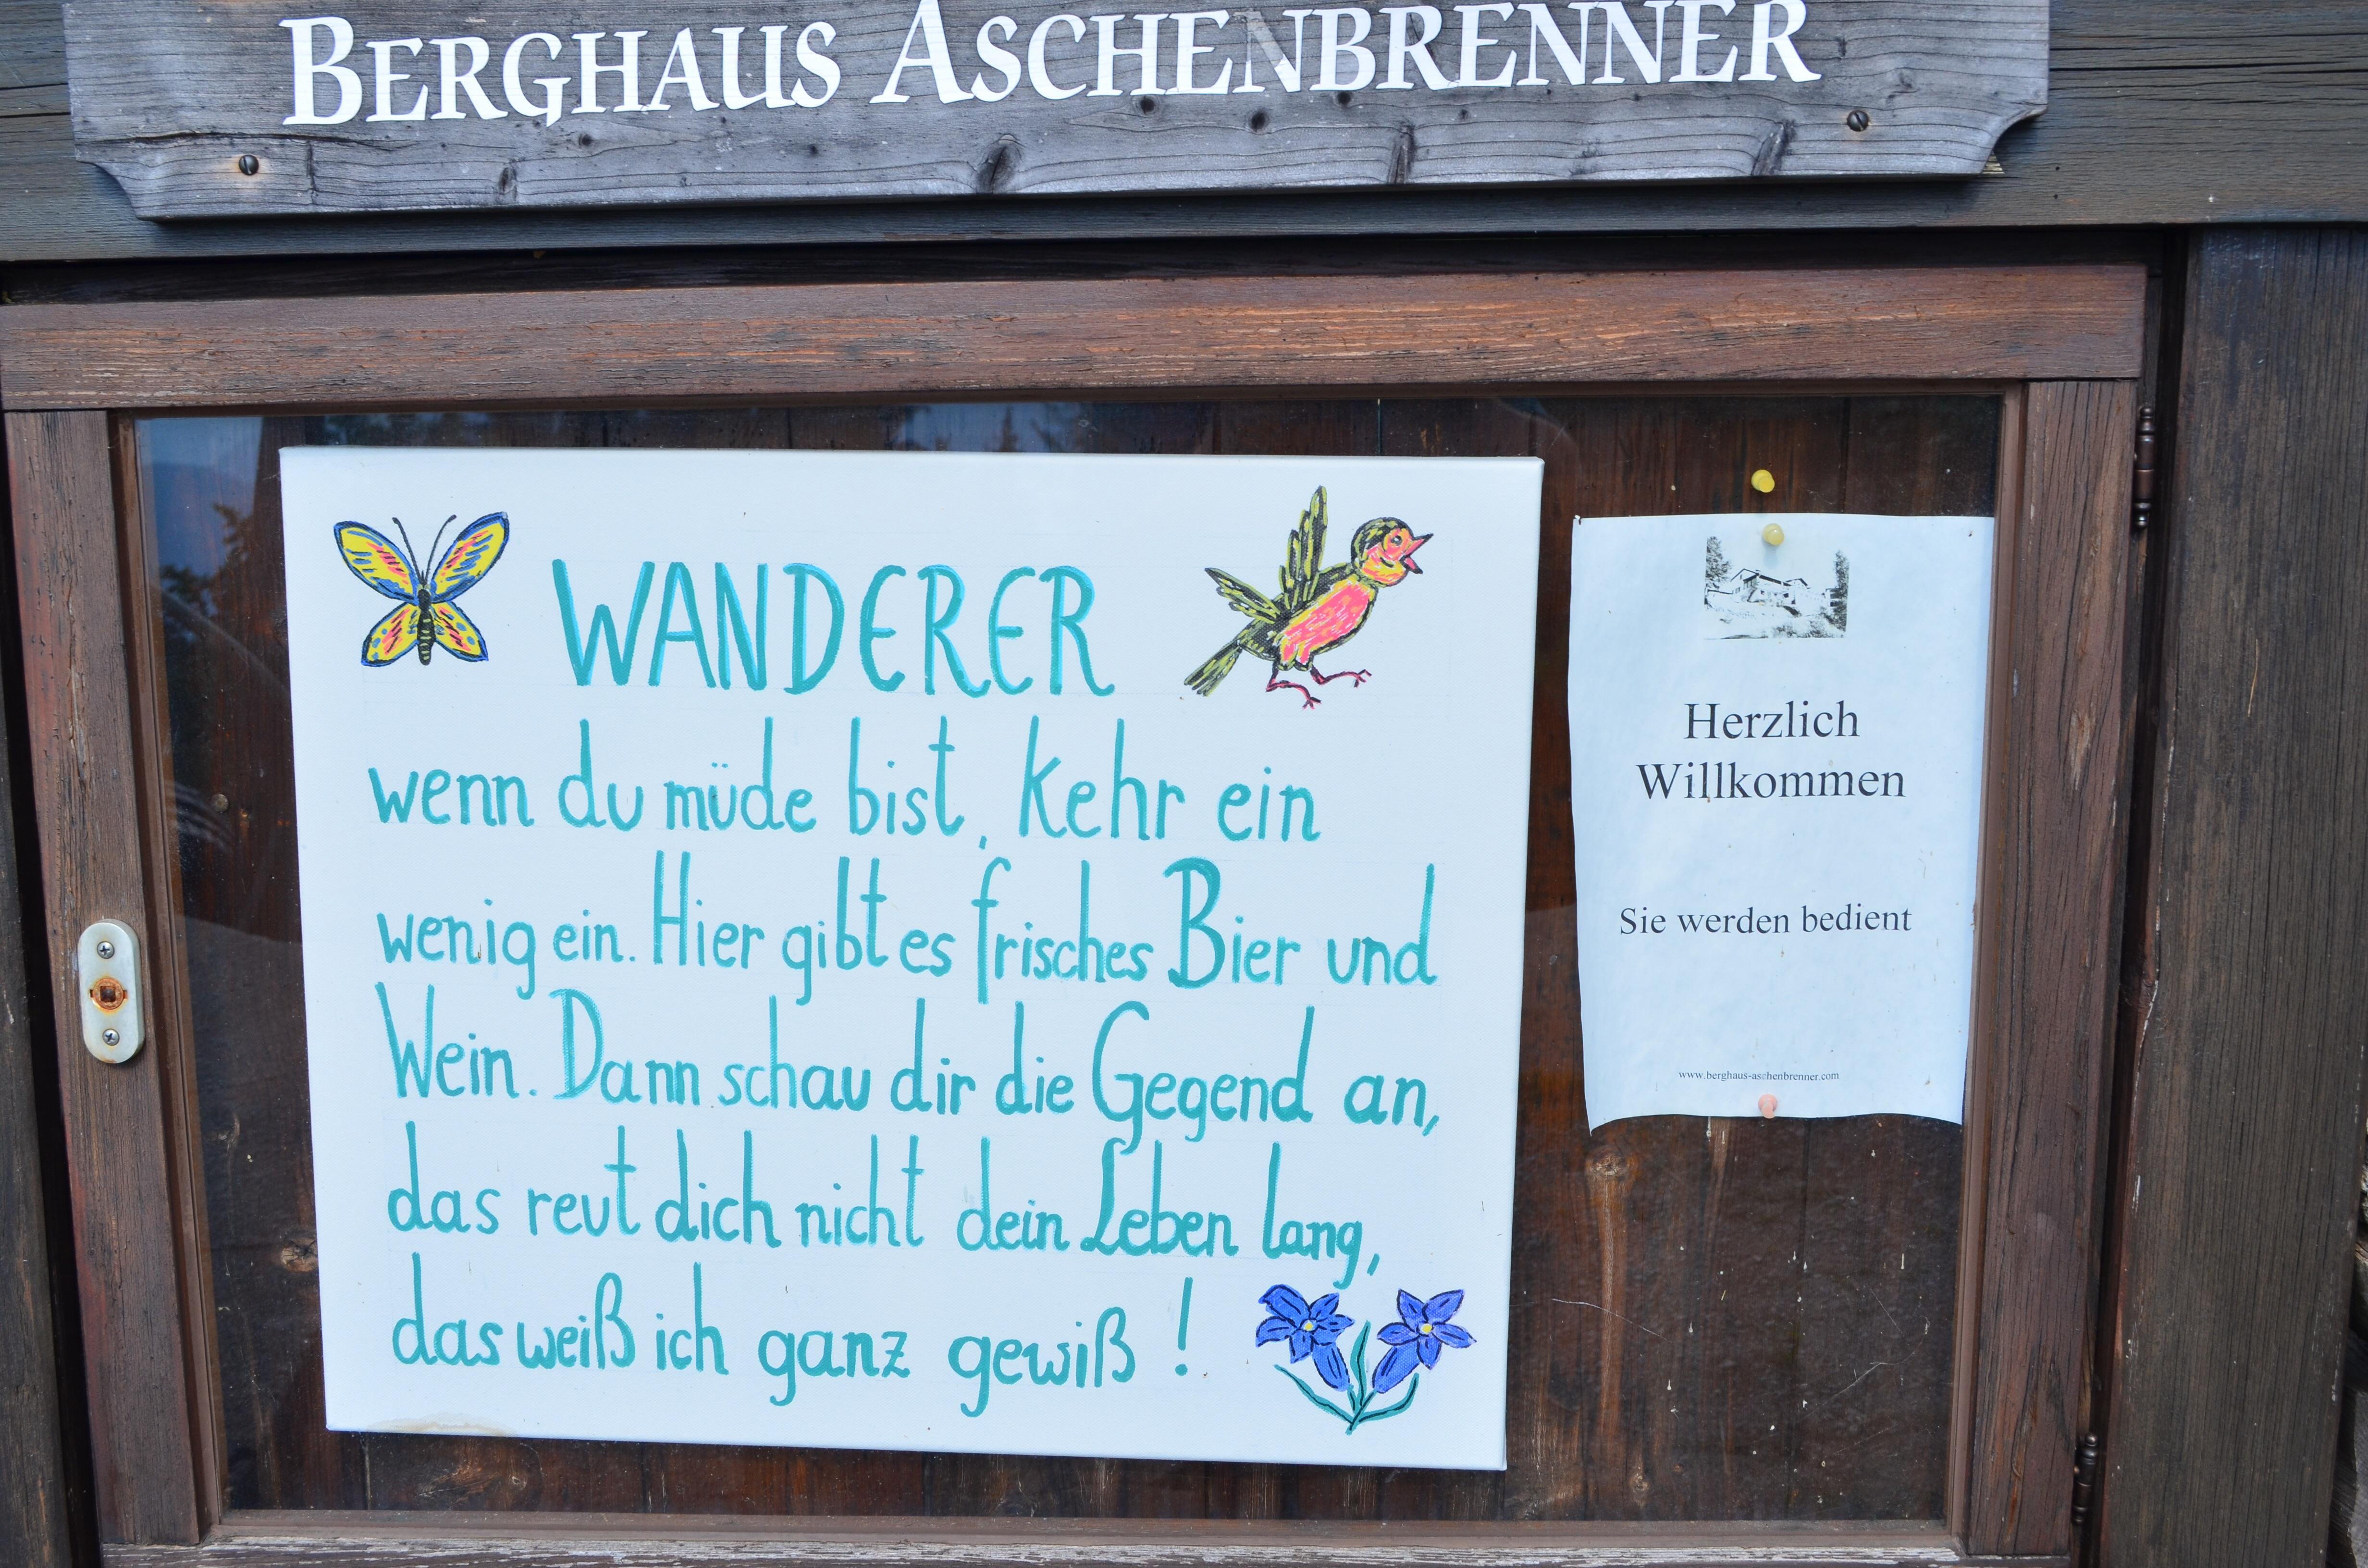 BERGHAUS ASCHENBRENNER
WANDERER
wenn du müde bist, kehr ein
wenig ein. Hier gibt es frisches Bier und
Wein. Dann schau dir die Gegend an,
das reut dich nicht dein Leben lang,
das weiß ich ganz gewiß !
Herzlich
Willkommen
Sie werden bedient
www.berghaus-aschenbrenner.com